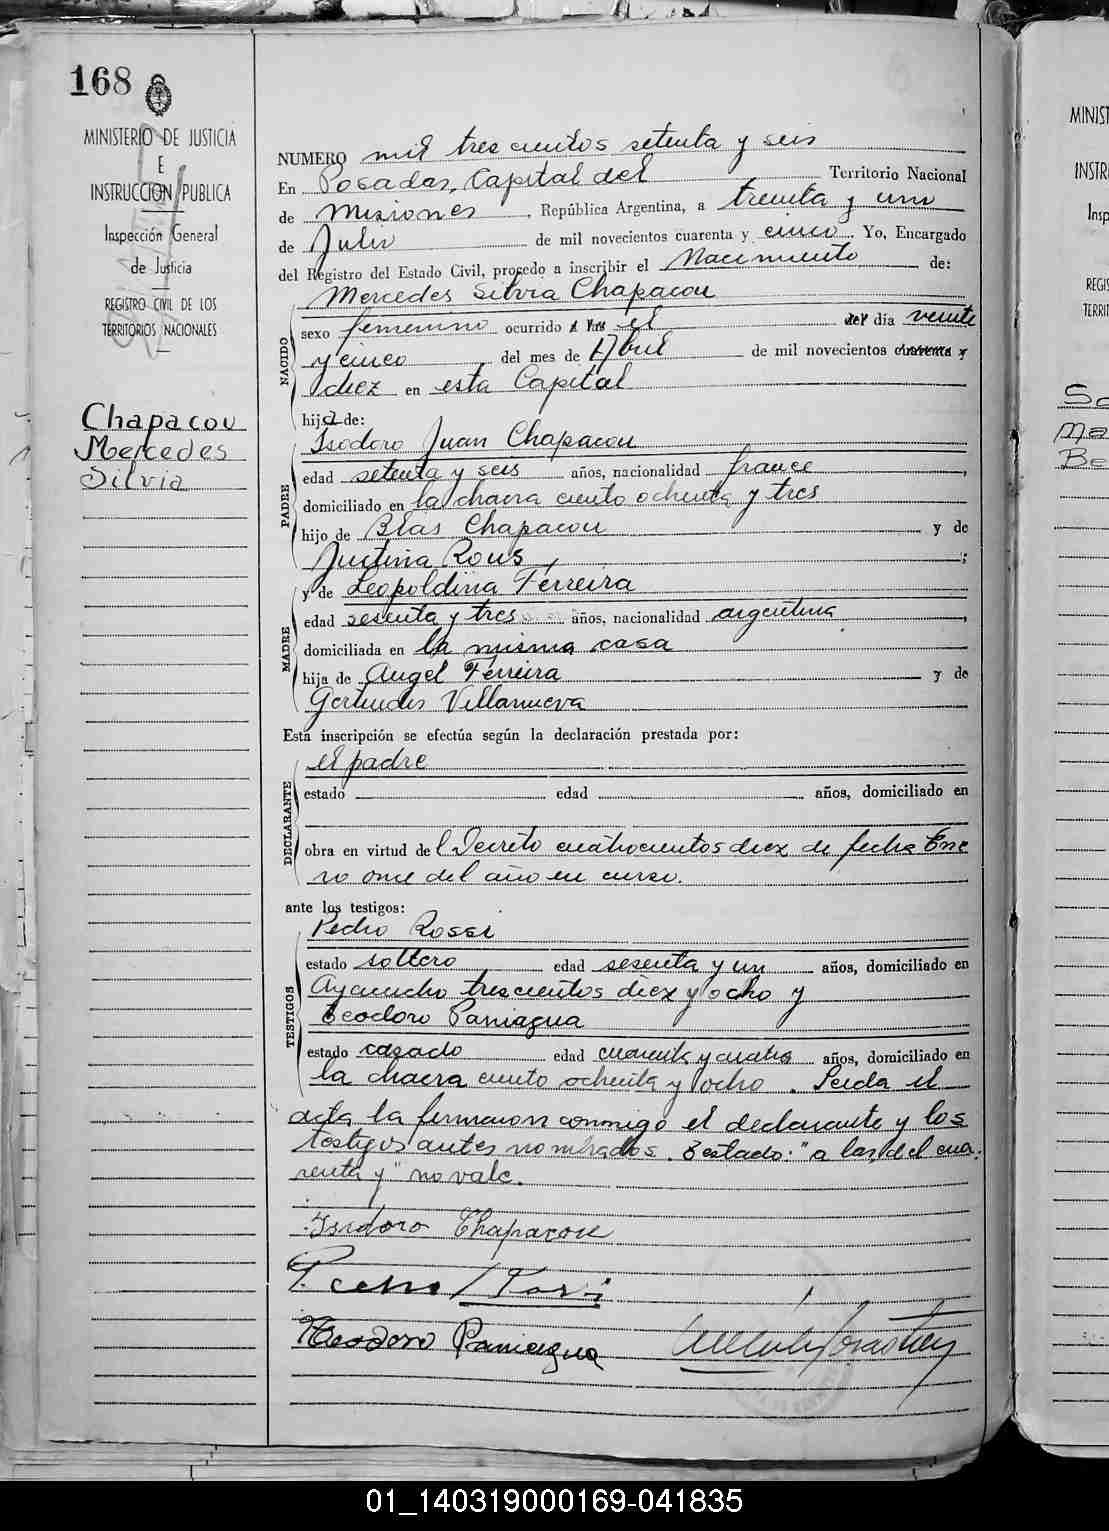 168
MINISTERIO DE JUSTICIA
E
INSTRUCCION PUBLICA
Inspección General
de Justicia
REGISTRO CIVIL DE LOS
TERRITORIOS NACIONALES
Chapacou
Mercedes
Silvia
NUMERO mil trescientos setenta y seis
En Posadas, Capital del Territorio Nacional
de Misiones, República Argentina, a treinta y uno
de Julio de mil novecientos cuarenta y cinco Yo, Encargado
del Registro del Estado Civil, procedo a inscribir el Nacimiento de:
Mercedes Silvia Chapacou
NACIDO
sexo femenino ocurrido a las el del día veinte
y cinco del mes de Abril de mil novecientos cuarenta y
diez en esta Capital
hija de:
Isodoro Juan Chapacou
PADRE
edad setenta y seis años, nacionalidad france,
domiciliado en la chacra ciento ochenta y tres
hijo de Blas Chapacou y de
Justina Rous;
y de Leopoldina Ferreira
MADRE
edad sesenta y tres años, nacionalidad argentina,
domiciliada en la misma casa
hija de Angel Ferreira y de
Gertrudis Villanueva
Esta inscripción se efectúa según la declaración prestada por:
el padre
DECLARANTE
estado edad años, domiciliado en
obra en virtud del Decreto cuatrocientos diez de fecha Ene
ro once del año en curso.
ante los testigos:
Pedro Rossi
TESTIGOS
estado soltero edad sesenta y un años, domiciliado en
Ayacucho trescientos diez y ocho y
Teodoro Paniagua
estado casado edad cuarenta y cuatro años, domiciliado en
la chacra ciento ochenta y ocho. Leida el
acta la firmaron conmigo el declarante y los
testigos antes nombrados. Testado: "a las, del cua-
renta y" no vale.
Isidoro Chapacou
Pedro Rossi
Teodoro Paniagua
MINIST
INSTR
Insp
REGIS
TERRIT
Sa
Ma
Be
01_140319000169-041835